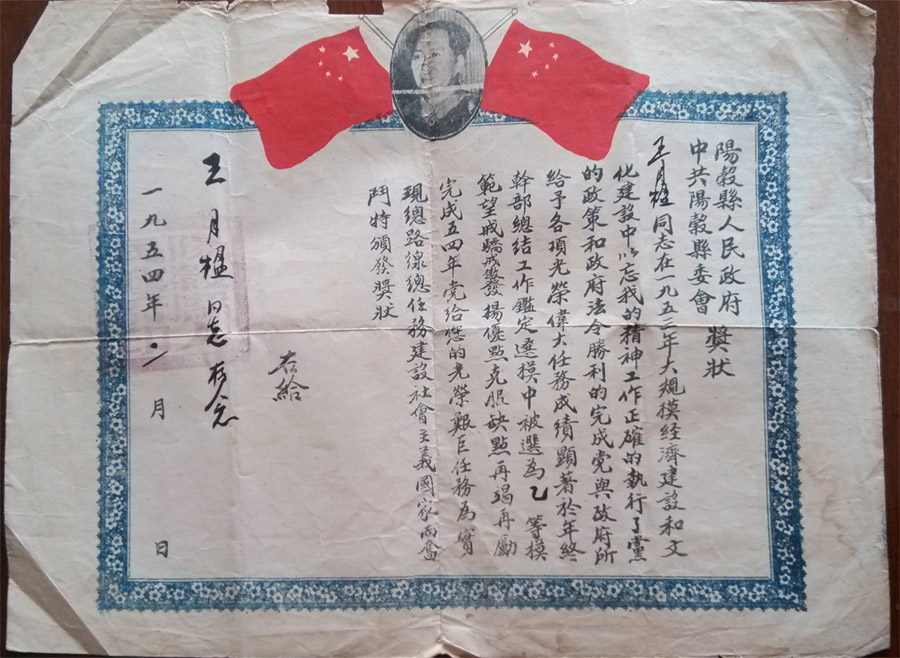 陽穀縣人民政府
中共陽穀縣委會
獎狀
王月榅同志在一九五三年大規模经濟建設和文
化建設中以忘我的精神工作正確的執行了黨
的政策和政府法令勝利的完成党與政府所
給予各項光榮偉大任務成績顯著於年終
幹部總结工作鑑定選模中被選為乙等模
範望戒驕戒發揚優點克服缺點再竭再勵
完成五四年党給您的光榮艱巨任務為實
現總路線總任務建設社會主義國家而奮
鬥特頒發獎狀
右給
王月榅同志存念
一九五四年二月 日